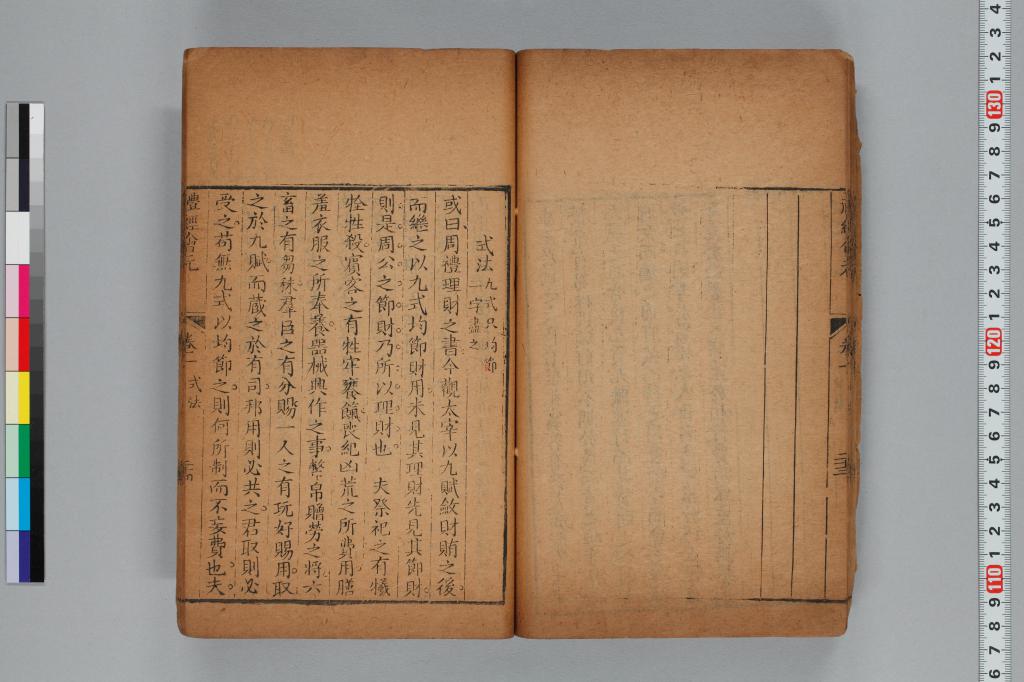 禮經會元
卷一
二十三
式法 九式只均節
一字盡之
或曰周禮理財之書今觀太宰以九賦斂財賄之後
而繼之以九式均節財用未見其理財先見其節財
則是周公之節財乃所以理財也夫祭祀之有犧
牷牲殺賓客之有牲牢饔餼喪紀凶荒之所費用膳
羞衣服之所奉養器械興作之事幣帛贈勞之將六
畜之有芻秣羣臣之有分賜一人之有玩好賜用取
之於九賦而藏之於有司邦用則必共之君取則必
受之苟無九式以均節之則何所制而不妄費也夫
禮經會元
卷一 式法
二十四